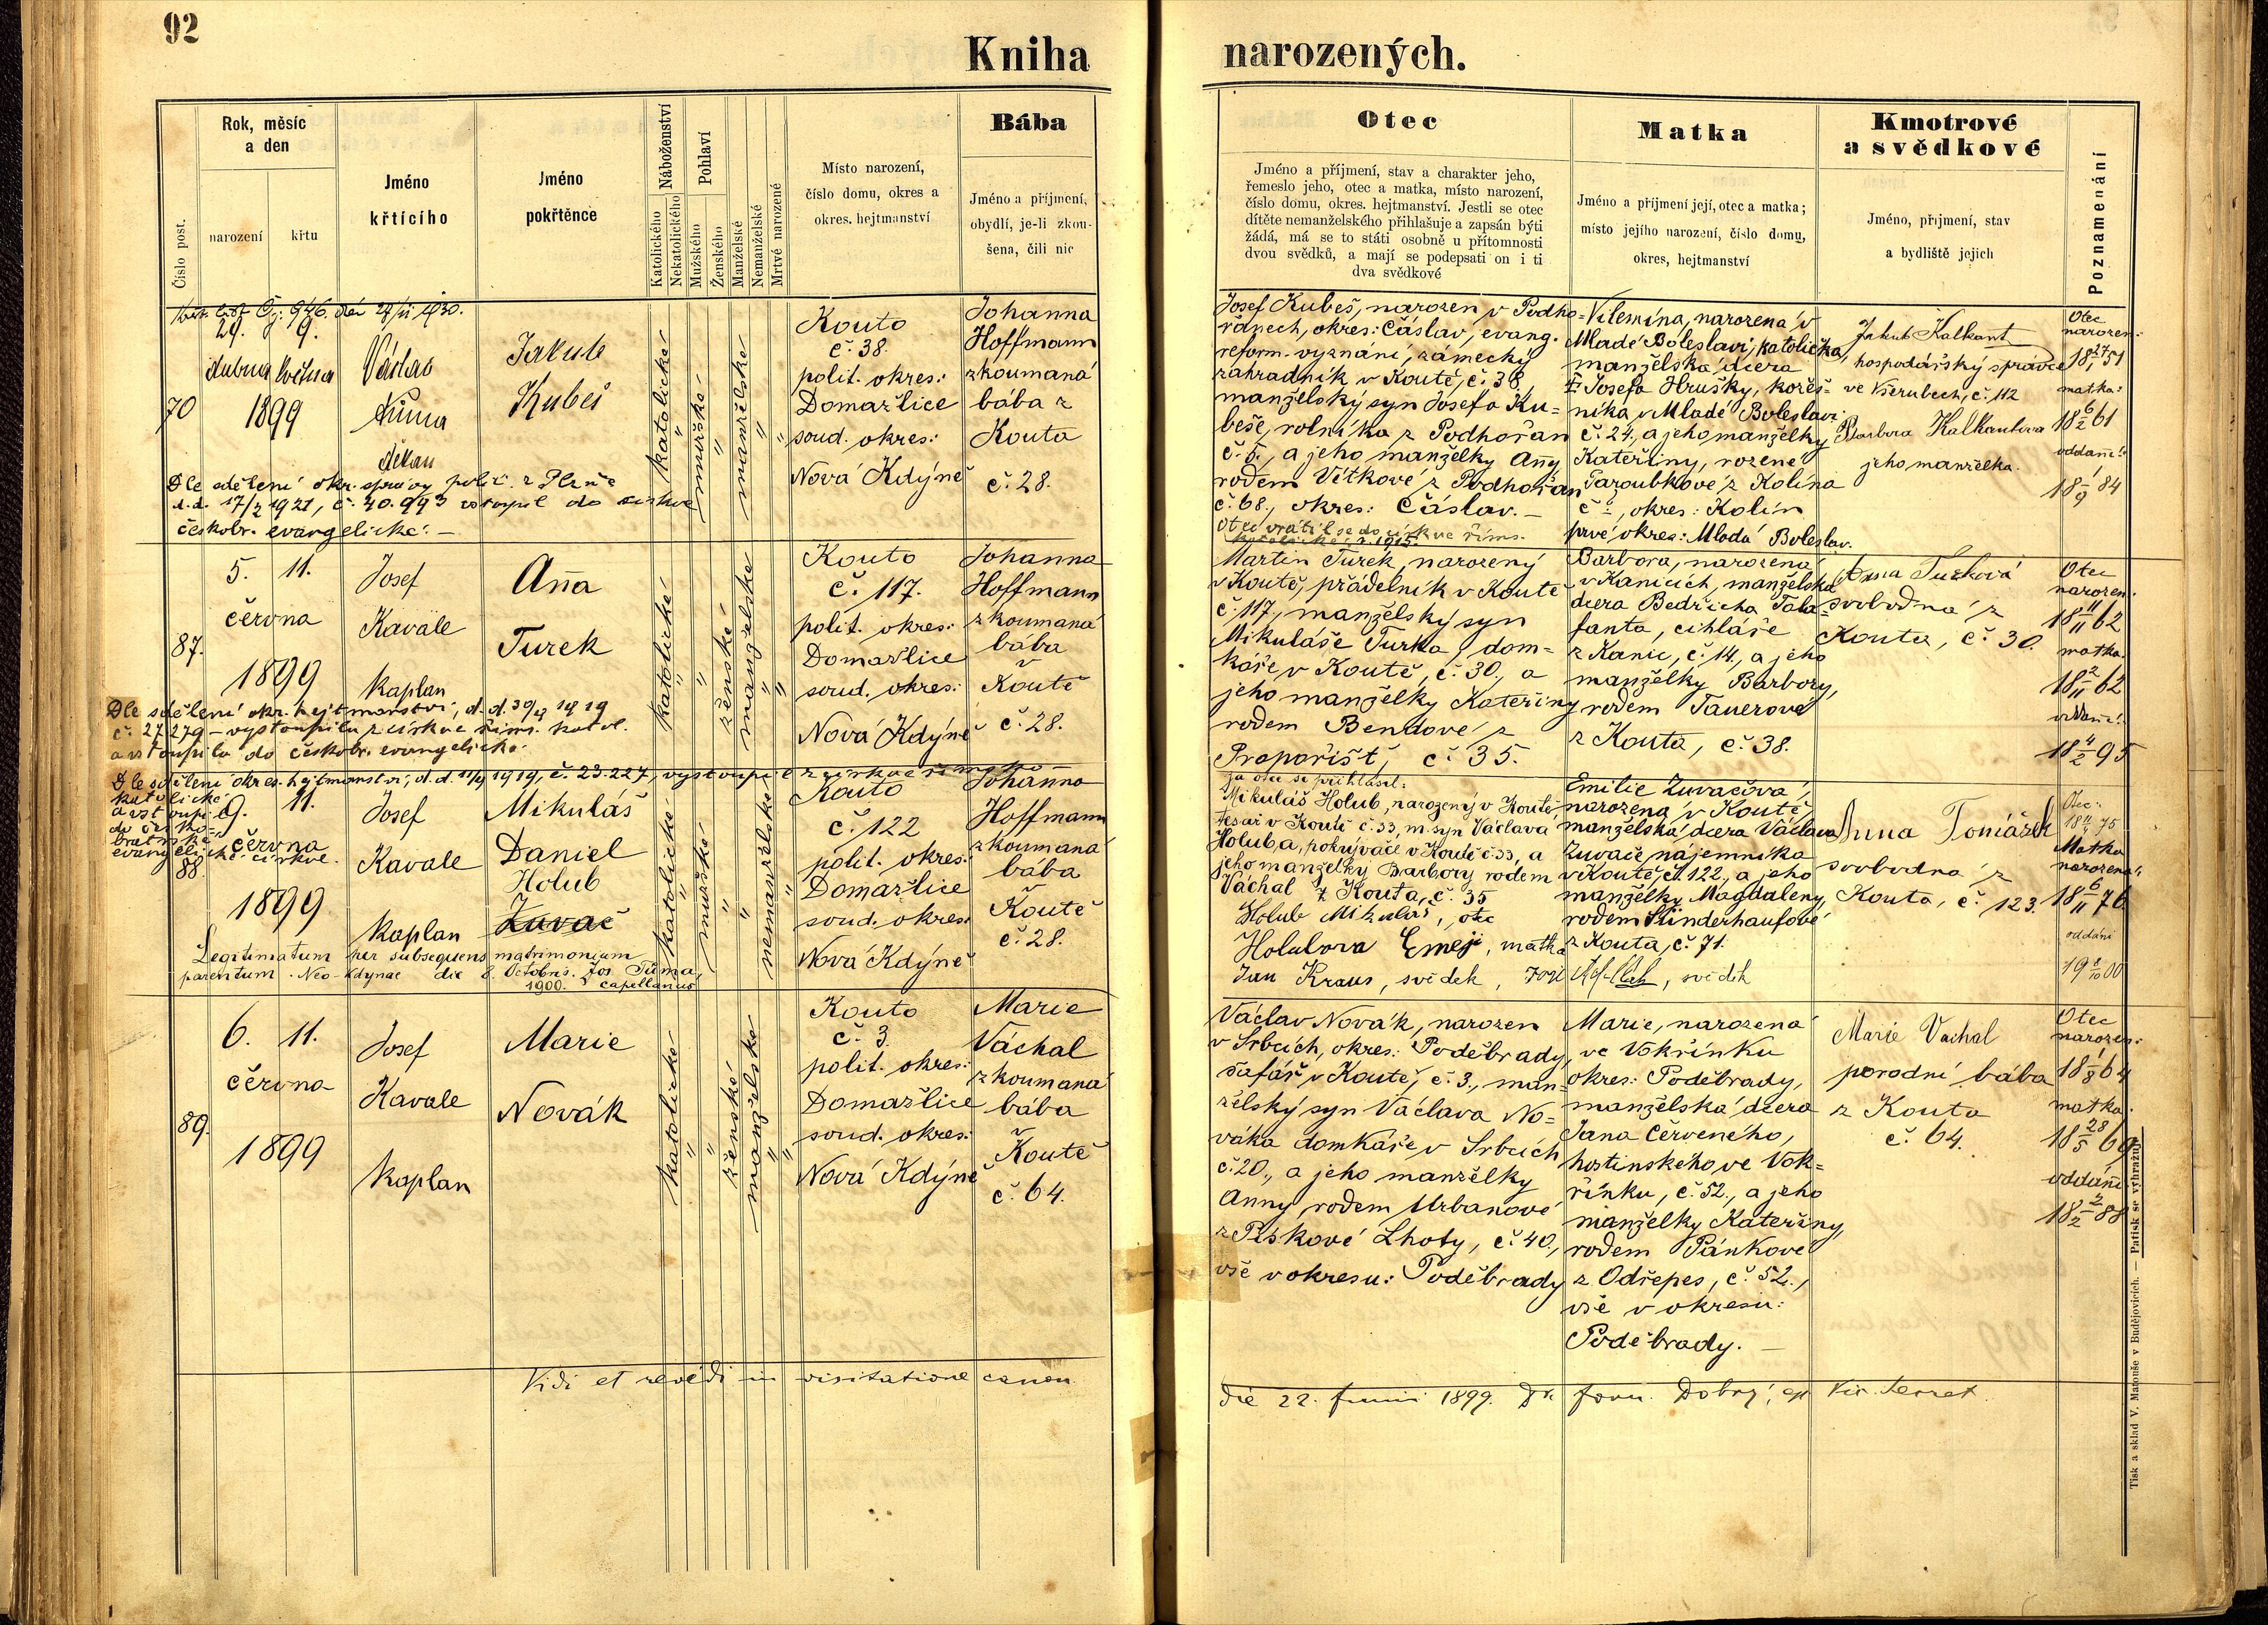 92
Kniha
narozených.
Číslo post.
Rok, měsíc
a den
narození
křtu
Jméno
křtícího
Jméno
pokřtěnce
Náboženství
Katolického
Nekatolického
Pohlaví
Mužského
Ženského
Manželské
Nemanželské
Mrtvě narozené
Místo narození,
číslo domu, okres a
okres. hejtmanství
Bába
Jméno a příjmení,
obydlí, je-li zkou-
šena, čili nic
Otec
Jméno a příjmení, stav a charakter jeho,
řemeslo jeho, otec a matka, místo narození,
číslo domu, okres. hejtmanství. Jestli se otec
dítěte nemanželského přihlašuje a zapsán býti
žádá, má se to státi osobně u přítomnosti
dvou svědků, a mají se podepsati on i ti
dva svědkové
Matka
Jméno a příjmení její, otec a matka;
místo jejího narození, číslo domu,
okres, hejtmanství
Kmotrové
a svědkové
Jméno, příjmení, stav
a bydliště jejich
Poznamenání
Křest. list Čj: 946. dán 27/II 1930.
70
29. 9.
dubna května
1899
Václav
Tůma
děkan
Jakub
Kubeš
katolické
"
mužské
"
manželské
"
"
Kouto
č. 38.
polit. okres:
Domažlice
soud. okres:
Nová Kdýně
Johanna
Hoffmann
zkoumaná
bába z
Kouta
č. 28.
Dle sdělení okr. správy polit. z Plzně
d.d. 17/2 1921, č. 40.993 vstoupil do církve
českobr. evangelické. –
Josef Kubeš, narozen v Podho-
řanech, okres: Čáslav, evang.
reform. vyznání, zámecký
zahradník v Koutě, č. 38,
manželský syn Josefa Ku-
beše, rolníka z Podhořan
č. 5., a jeho manželky Anny
rodem Vítkové z Podhořan
č. 68., okres: Čáslav. –
Otec vrátil se do církve říms.
katolické r. 1915.
Vilemína, narozená v
Mladé Boleslavi, katolička,
manželská dcera
Josefa Hrušky, kožeš-
níka v Mladé Boleslavi
č. 24., a jeho manželky
Kateřiny, rozené
Paroubkové z Kolína
č. –, okres: Kolín
prvé okres: Mladá Boleslav.
Jakub Kalkant
hospodářský správce
ve Všerubech, č. 112
Barbora Kalkantova
jeho manželka.
Otec
narozen:
18 27/1 51
matka:
18 6/2 61
oddáni:
18 1/9 84
87.
5. 11.
června
1899
Josef
Kavale
kaplan
Anna
Turek
katolické
"
"
ženské
manželské
"
"
Kouto
č. 117.
polit. okres:
Domažlice
soud. okres:
Nová Kdýně
Johanna
Hoffmann
zkoumaná
bába
v
Koutě
č. 28.
Dle sdělení okr. hejtmanství, d.d. 30/4 1919
č. 27279 – vystoupila z církve říms. katol.
a vstoupila do českobr. evangelické.
Martin Turek, narozený
v Koutě, přádelník v Koutě
č. 117., manželský syn
Mikuláše Turka, dom-
káře v Koutě, č. 30., a
jeho manželky Kateřiny
rodem Bendové z
Prapořišť, č. 35.
Barbora, narozená
v Kanicích, manželská
dcera Bedřicha Tala-
fanta, cihláře
z Kanic, č. 14., a jeho
manželky Barbory,
rodem Tauerové
z Kouta, č. 38.
Anna Turková
svobodná z
Kouta, č. 30.
Otec
narozen:
18 11/11 62
matka:
18 2/11 62
oddáni:
18 4/2 95
Dle sdělení okres. hejtmanství, d.d. 11/4 1919, č. 23.227, vystoupil z církve římsko-
katolické
a vstoupil
do česko-
bratrské
evangelické církve.
88.
9. 11.
června
1899
Josef
Kavale
kaplan
Mikuláš
Daniel
Holub
Zuvač
katolické
"
mužské
"
"
nemanželské
"
Kouto
č. 122
polit. okres:
Domažlice
soud. okres:
Nová Kdýně
Johanna
Hoffmann
zkoumaná
bába
v
Koutě
č. 28.
Legitimatum per subsequens matrimonium
parentum. Neo-Kdynae die 8. Octobris. Jos. Tůma,
1900. capellanus
za otce se přihlásil:
Mikuláš Holub, narozený v Koutě
tesař v Koutě č. 33, m. syn Václava
Holuba, pokrývače v Koutě č. 33, a
jeho manželky Barbory rodem
Váchal z Kouta, č. 35
Holub Mikuláš, otec
Holubova Emeji, matka
Jan Kraus, svědek,
Emilie Zuvačová,
narozená v Koutě,
manželská dcera Václava
Zuvače nájemníka
v Koutě, č. 122., a jeho
manželky Magdaleny,
rodem Künderhaufové
z Kouta, č. 71.
svědek
Anna Tomášek
svobodná z
Kouta, č. 123.
Otec:
75
Matka
narozena:
18 6/11 76
oddáni
19 8/10 00
89.
6. 11.
června
1899
Josef
Kavale
kaplan
Marie
Novák
katolické
"
"
ženské
manželské
"
"
Kouto
č. 3
polit. okres:
Domažlice
soud. okres:
Nová Kdýně
Marie
Váchal
zkoumaná
bába
v
Koutě
č. 64.
Václav Novák, narozen
v Srbcích, okres: Poděbrady,
šafář v Koutě, č. 3., man-
želský syn Václava No-
váka domkáře v Srbcích
č. 20., a jeho manželky
Anny, rodem Urbanové
z Pískové Lhoty, č. 40.,
vše v okresu: Poděbrady
Marie, narozená
ve Vokřínku
okres: Poděbrady,
manželská dcera
Jana Červeného,
hostinského ve Vok-
řínku, č. 52., a jeho
manželky Kateřiny,
rodem Pánkové
z Odřepes, č. 52.,
vše v okresu:
Poděbrady. –
Marie Vachal
porodní bába
z Kouta
č. 64.
Otec
narozen:
18 1/8 64
matka:
18 28/5 69
oddáni:
18 2/2 88
Vidi et revidi in visitatione canon.
die 22. Junii 1899. Dr. Dobrý, Vic. Secret.
Tisk a sklad V. Matouše v Budějovicích. — Patisk se vyhražuje.